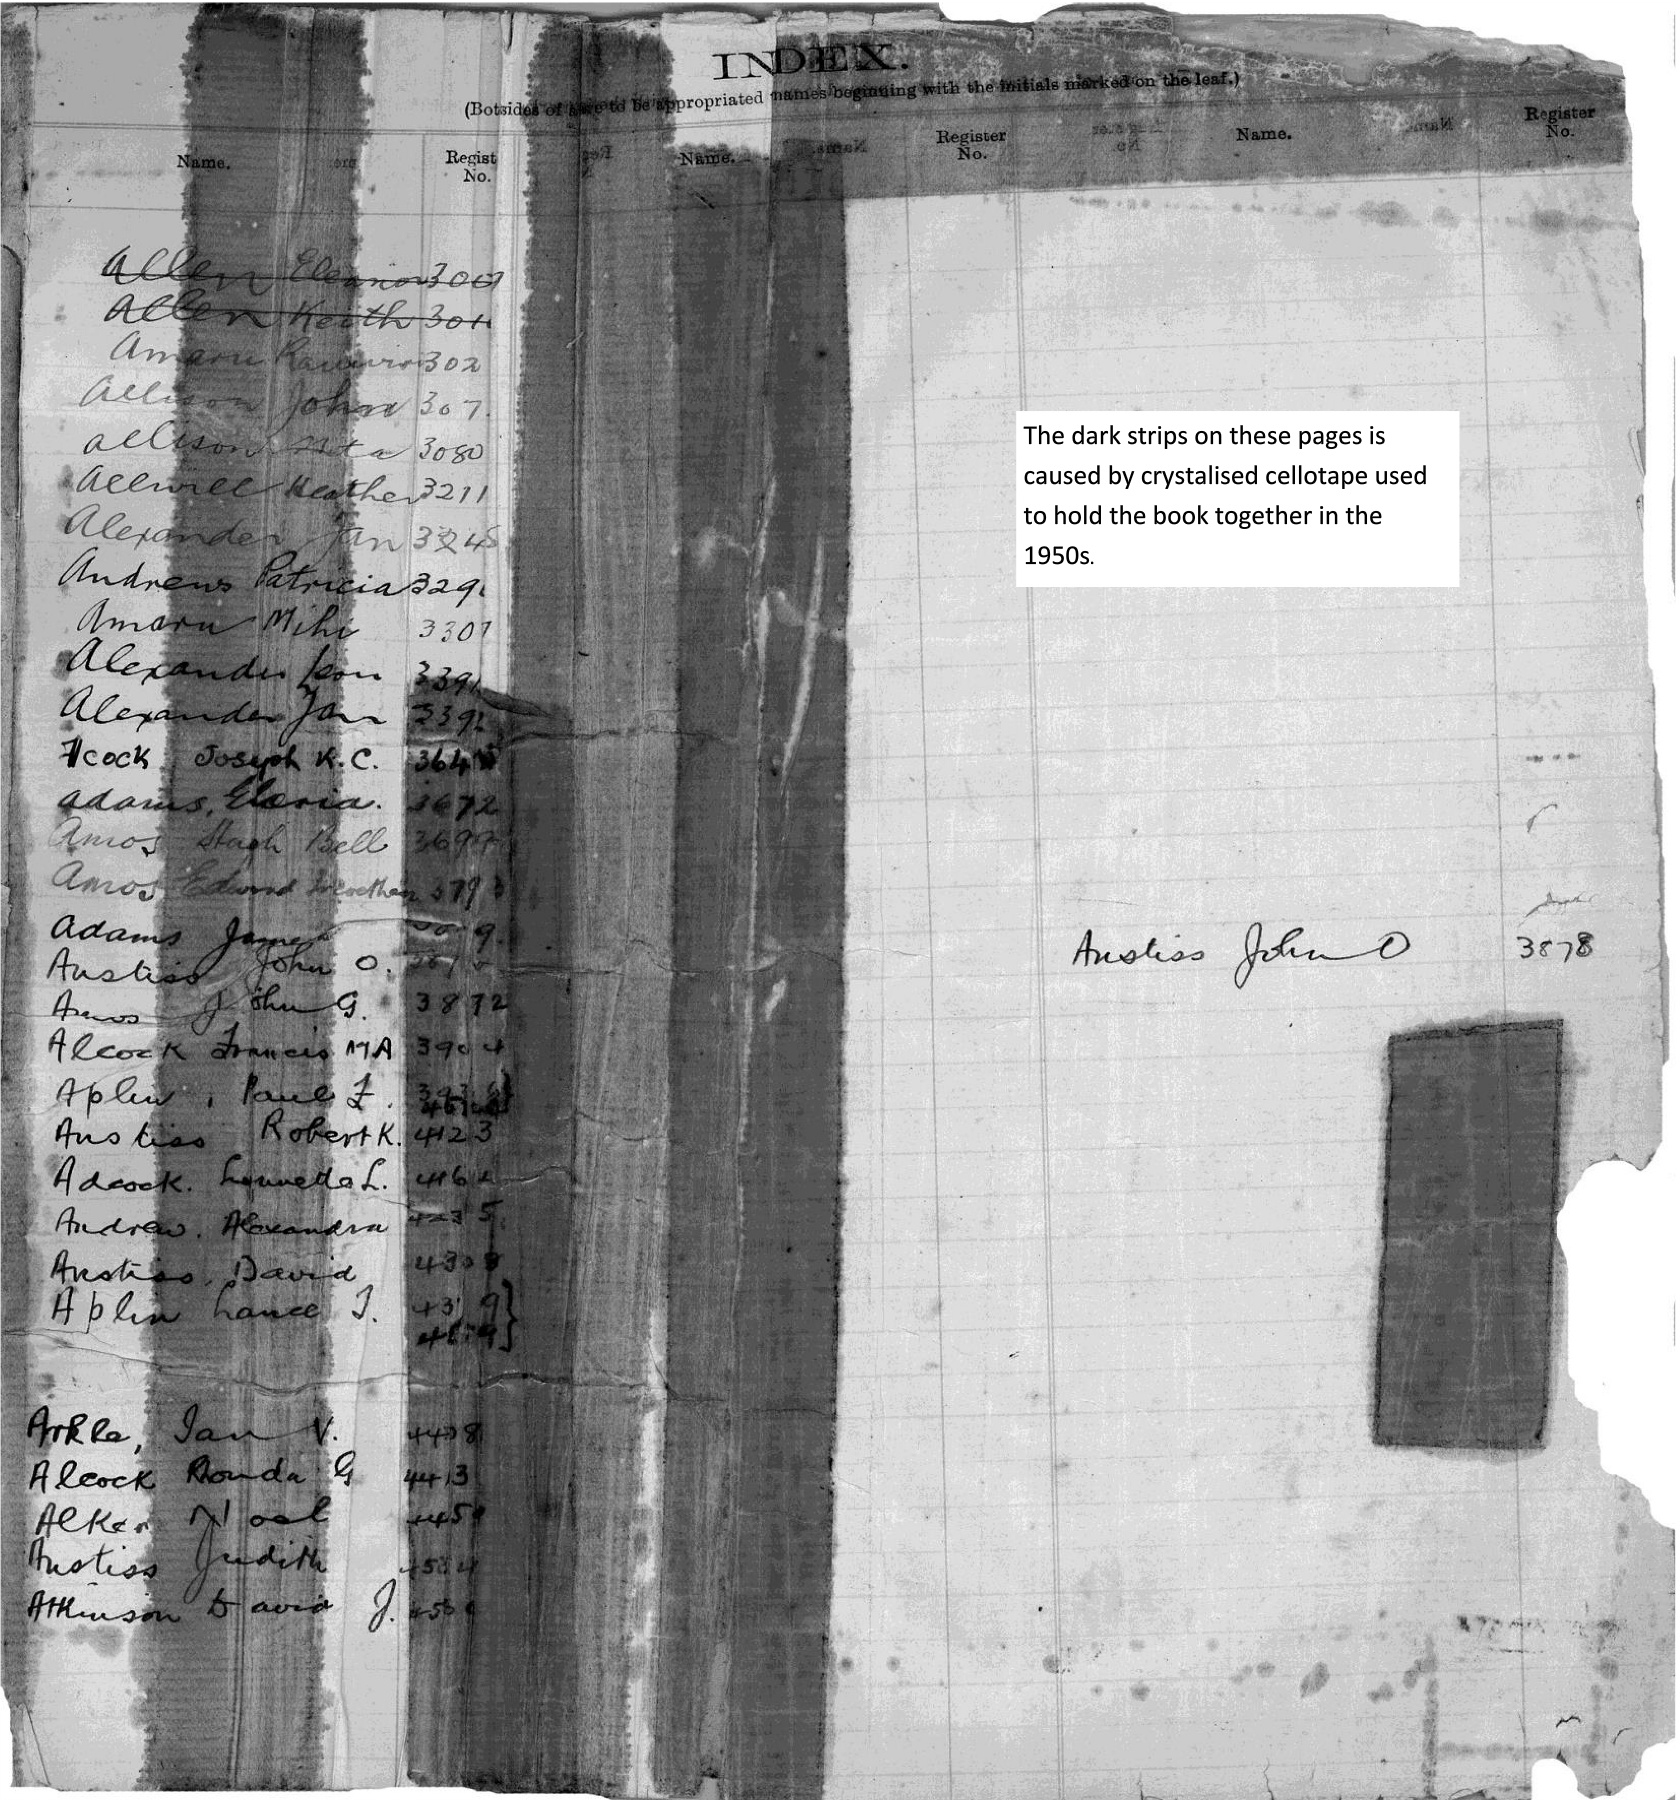 INDEX.
(Botsides of are to be appropriated names beginning with the initials marked on the leaf.)
Name. Regist No. Name. Register No. Name. Register No.
Allen Eleanor 300
Allen Keith 301
Amaru 302
Allison John 307
Allison 3080
Allwill Heather 3211
Alexander Jan 324
Andrews Patricia 329
Amaru Mihi 3307
Alexander Jean 339
Alexander Jan 339
cock Joseph K.C. 364
Adams, Gloria. 3672
Amos Hugh Bell 369
Amos Edward 3793
Adams James 9
Anstiss John O.
Amos John G. 3872
Alcock Francis MA 3904
Aplin, Paul F.
Anstiss Robert K. 4123
Adcock. Lynnette L. 416
Andrew. Alexandra 4235
Anstiss, David 430
Aplin Lance J. 431 9
Arkle, Ian V. 44 8
Alcock Ronda G 4413
Alker Noel 445
Anstiss Judith
Atkinson David J.
The dark strips on these pages is
caused by crystalised cellotape used
to hold the book together in the
1950s.
Anstiss John O 3878